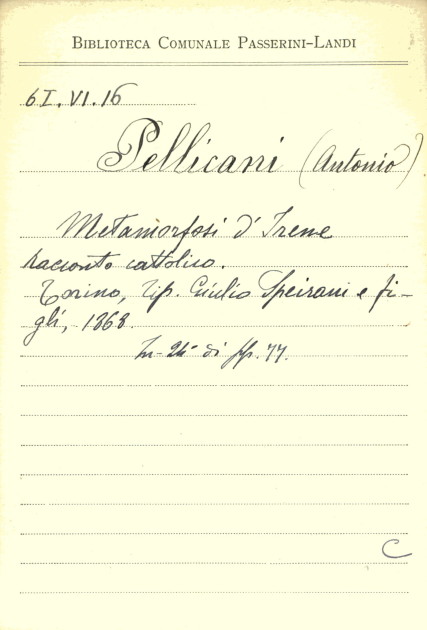 BIBLIOTECA COMUNALE PASSERINI-LANDI
6I.VI.16
Pellicani (Antonio)
Metamorfosi d'Irene
racconto cattolico.
Torino, tip. Giulio Speirani e fi-
gli, 1868.
In-24° di pp. 77.
C